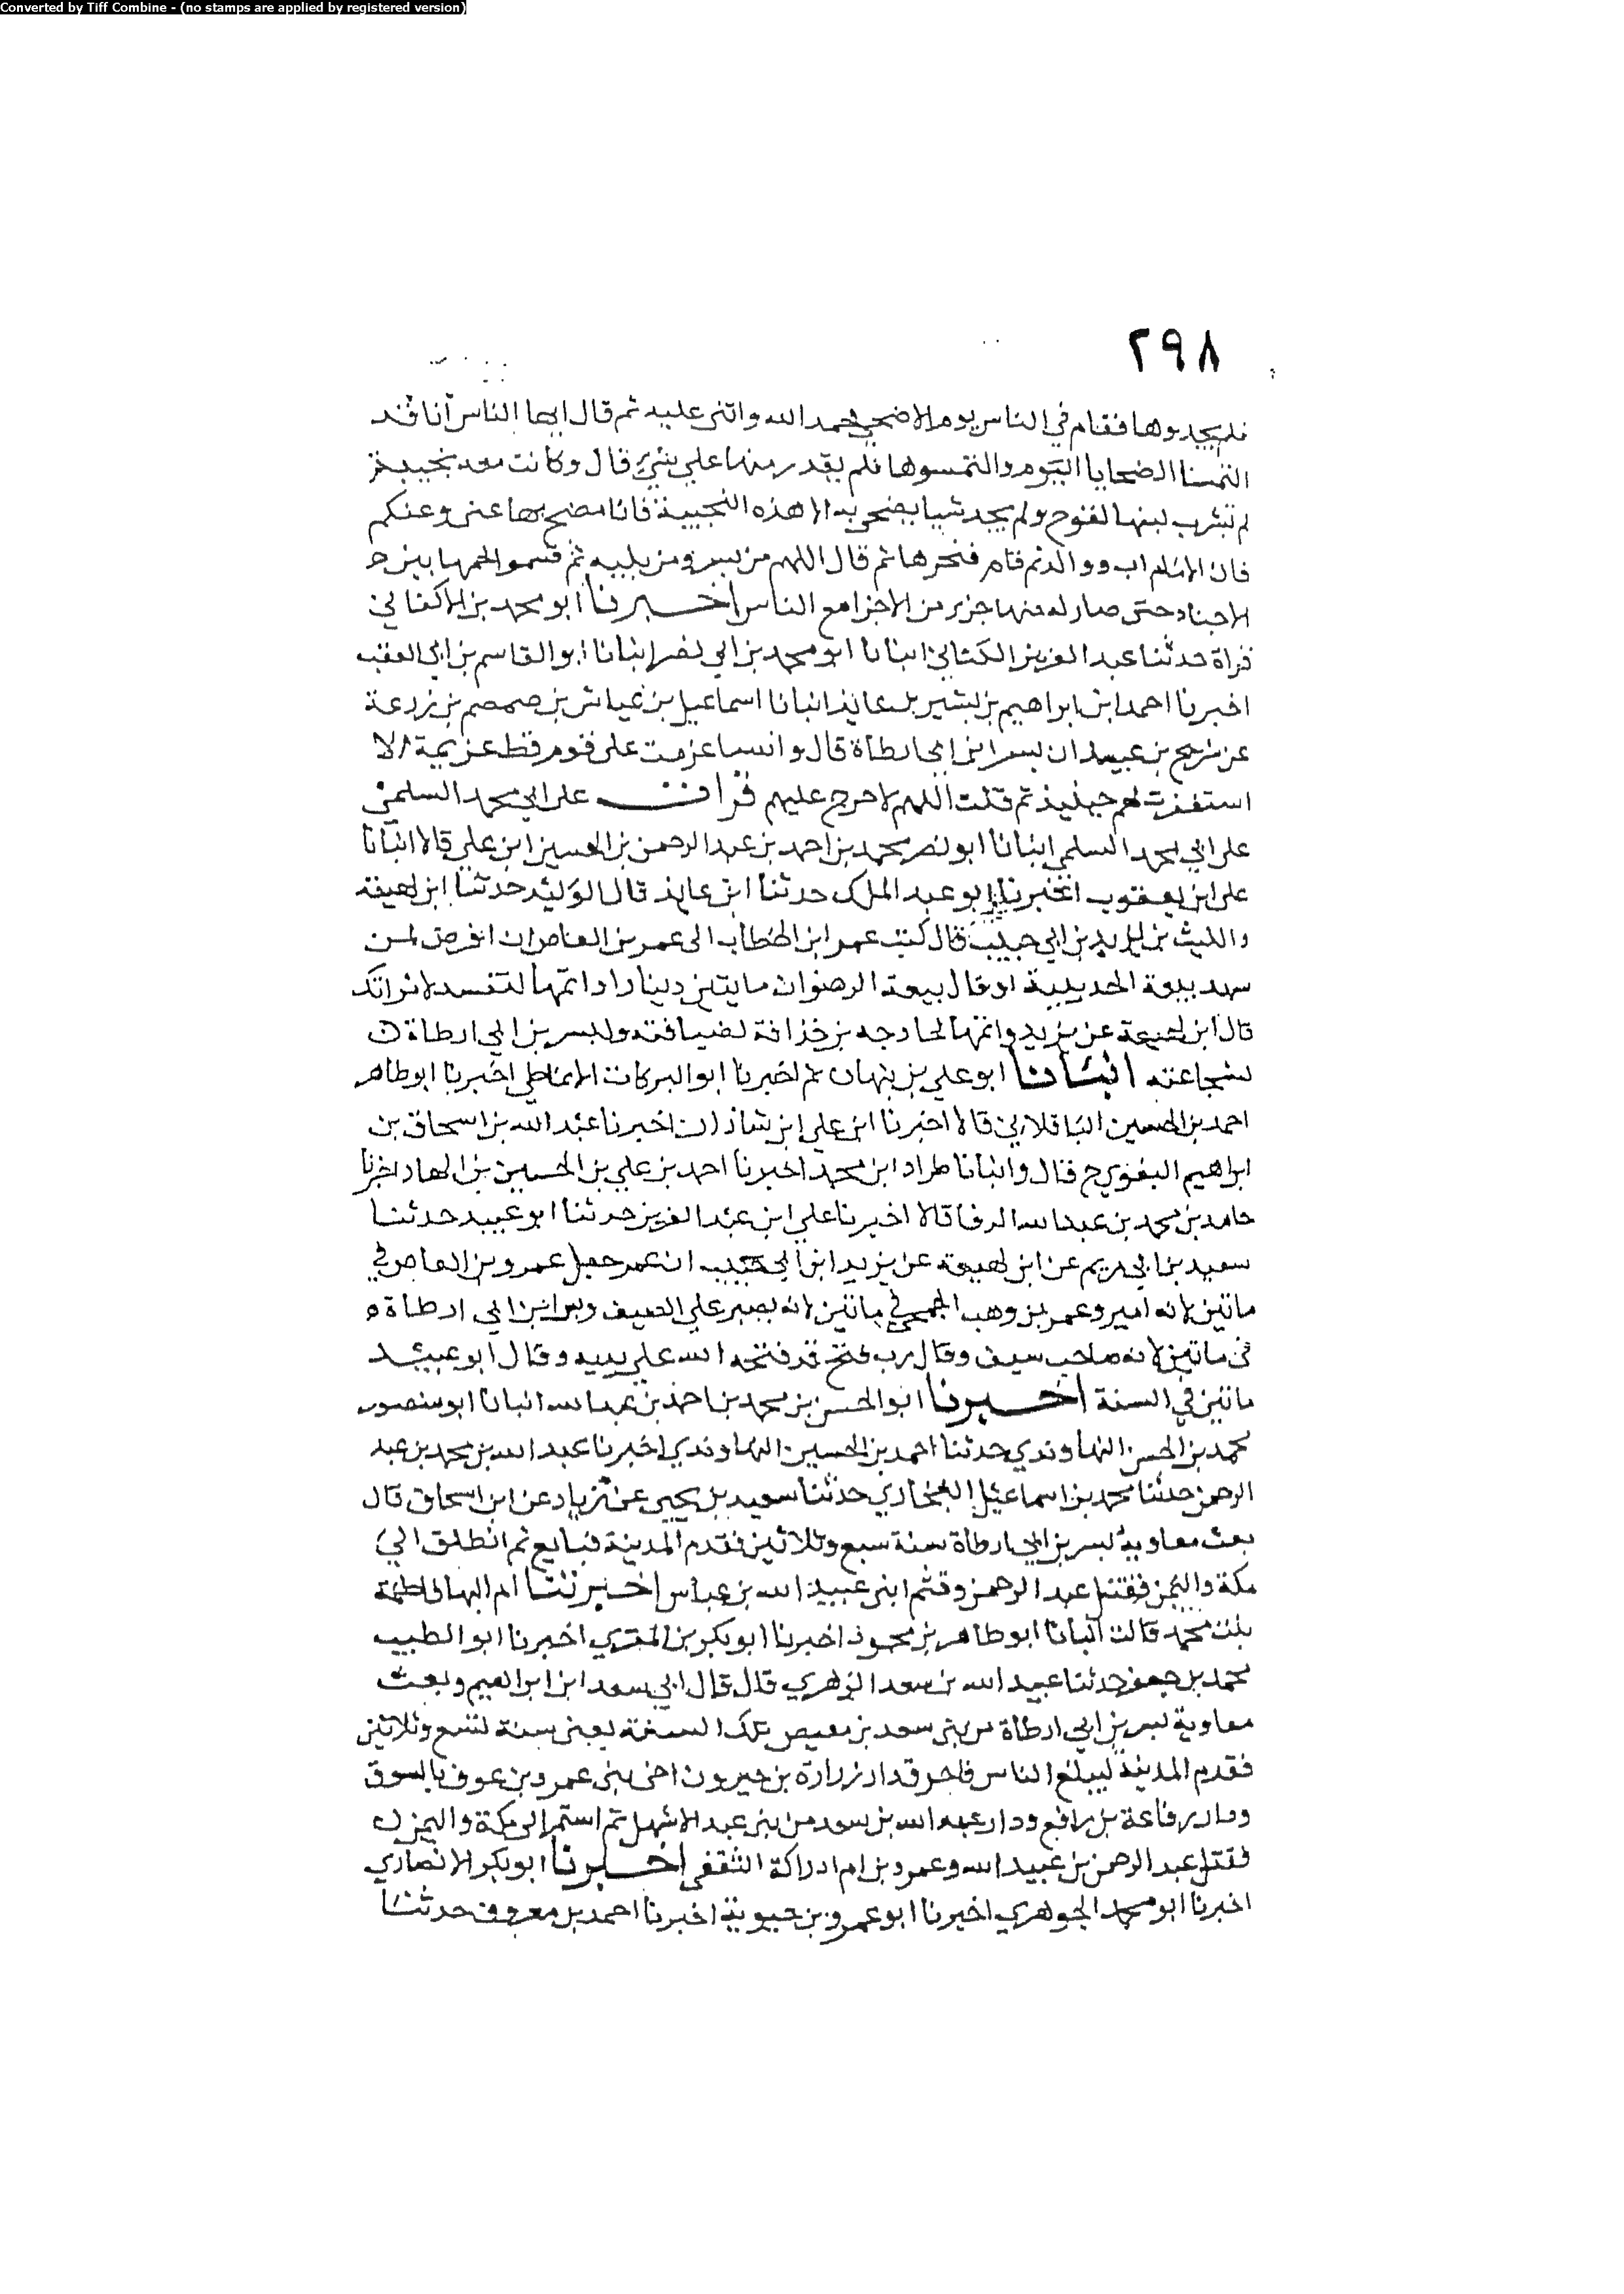 Converted by Tiff Combine - (no stamps are applied by registered version)
٢٩٨
فلم يجدوها فقام في الناس يوم الاضحي فحمد الله واثنى عليه ثم قال ايها الناس انا قد
التمسنا الضحايا اليوم والتمسوها فلم يقدر منها علي شيء قال وكانت معه نجيبة
لم تشرب لبنها لقوح ولم يجد شيا يضحي به الا هذه النجيبة فانا مضح بها عنى وعنكم
فان الامام اب ووالد ثم قام فنحرها ثم قال اللهم من بسر ومن يليه ثم قسموا لحمها بين
الاجناد حتى صار له منها جزء من الاجزا مع الناس اخبرنا ابو محمد بن الاكفاني
قراة حدثنا عبد العزيز الكتاني انبانا ابو محمد بن ابي نصر انبانا ابو القاسم بن ابي العقب
اخبرنا احمد ابن ابراهيم بن بشير بن عايذ انبانا اسماعيل بن عياش بن ضمضم بن زرعة
عن شريح بن عبيد ان بسر ابن ابي ارطاة قال والله ما عزمت على قوم قط عزيمة الا
استغفرت لهم حينيذ ثم قلت اللهم لا حرج عليهم قرات على ابي محمد السلمي
على ابي محمد السلمي انبانا ابو نصر محمد بن احمد بن عبد الرحمن بن الحسين ابن علي قالا انبانا
على ابن يعقوب اخبرنا ابو عبد الملك حدثنا ابن عايذ قال الوليد حدثنا ابن لهيعة
والليث بن يزيد بن ابي حبيب قال كتب عمر ابن الخطاب الى عمر بن العاص ان افرض لمن
شهد بيعة الحديبية او قال بيعة الرضوان مايتين دينارا واتمها لنفسك لامراتك
قال ابن لهيعة عن يزيد واتمها لخارجه بن حذافة لضيافته ولبسر بن ابي ارطاة
لشجاعته انبانا ابو علي بن نبهان ثم اخبرنا ابو البركات الانماطي اخبرنا ابو طاهر
احمد بن الحسين الباقلاني قالا اخبرنا ابن علي ابن شاذان اخبرنا عبد الله بن اسحاق بن
ابراهيم البغوي ح قال وانبانا طراد ابن محمد اخبرنا احمد بن علي بن الحسين بن الهاد اخبرنا
حامد بن محمد بن عبد الله الرفا قالا اخبرنا علي ابن عبد العزيز حدثنا ابو عبيد حدثنا
سعيد بن ابي مريم عن ابن لهيعة عن يزيد ابن ابي حبيب ان عمر جعل عمرو بن العاص في
ماتين لانه امير وعمر بن وهب الجمحي في ماتين لانه يصبر علي الضيف وبسر ابن ابي ارطاة
في ماتين لانه صاحب سيف وقال رب فتح قد فتحه الله علي يديه وقال ابو عبيد
ماتين في السنة اخبرنا ابو الحسن بن محمد بن احمد بن عبد الله انبانا ابو منصور
محمد بن الحسن النهاوندي حدثنا احمد بن الحسين النهاوندي اخبرنا عبد الله بن محمد بن عبد
الرحمن حدثنا محمد بن اسماعيل البخاري حدثنا سعيد بن يحيى عن زياد عن ابن اسحاق قال
بعث معاوية بسر بن ابي ارطاة سنة سبع وثلاثين فقدم المدينة فبايع ثم انطلق الي
مكة واليمن فقتل عبد الرحمن وقثم ابني عبيد الله بن عباس اخبرتنا ام البها فاطمة
بنت محمد قالت انبانا ابو طاهر بن محمود اخبرنا ابو بكر بن المقري اخبرنا ابو الطيب
محمد بن جعفر حدثنا عبيد الله بن سعد الزهري قال قال ابي سعد ابن ابراهيم وبعث
معاوية بسر بن ابي ارطاة من بني سعد بن معيص تلك السنة يعنى سنة تسع وثلاثين
فقدم المدينة ليبلغ الناس فاحرق دار زرارة بن جيرون اخى بنى عمرو بن عوف بالسوق
ودار رفاعة بن رافع ودار عبد الله بن سعد من بني عبد الاشهل ثم استمر الى مكة واليمن
فقتل عبد الرحمن بن عبيد الله وعمرو بن ام ادراكة الثقفي اخبرنا ابو بكر الانصاري
اخبرنا ابو محمد الجوهري اخبرنا ابو عمرو بن حيوية اخبرنا احمد بن معروف حدثنا